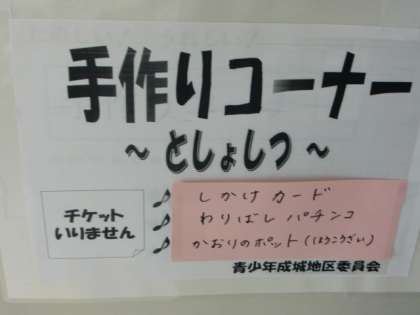 手作りコーナー
~ としょしつ ~
チケット
いりません
しかけカード
わりばしパチンコ
かおりのポット(ほうこうざい)
青少年成城地区委員会